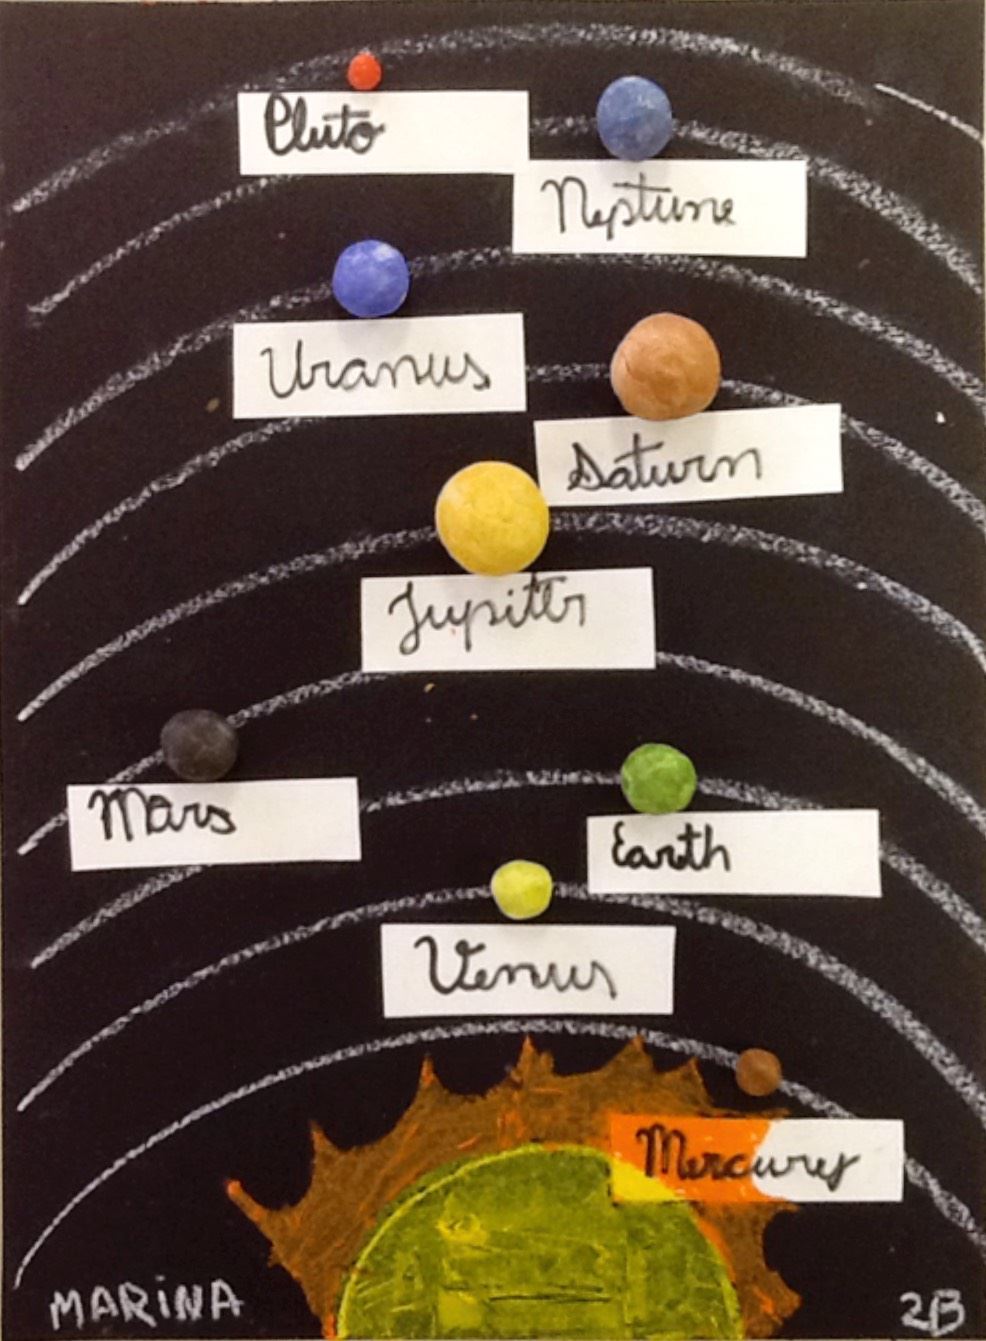 Pluto
Neptune
Uranus
Saturn
Jupiter
Mars
Earth
Venus
Mercury
MARiNA
2B